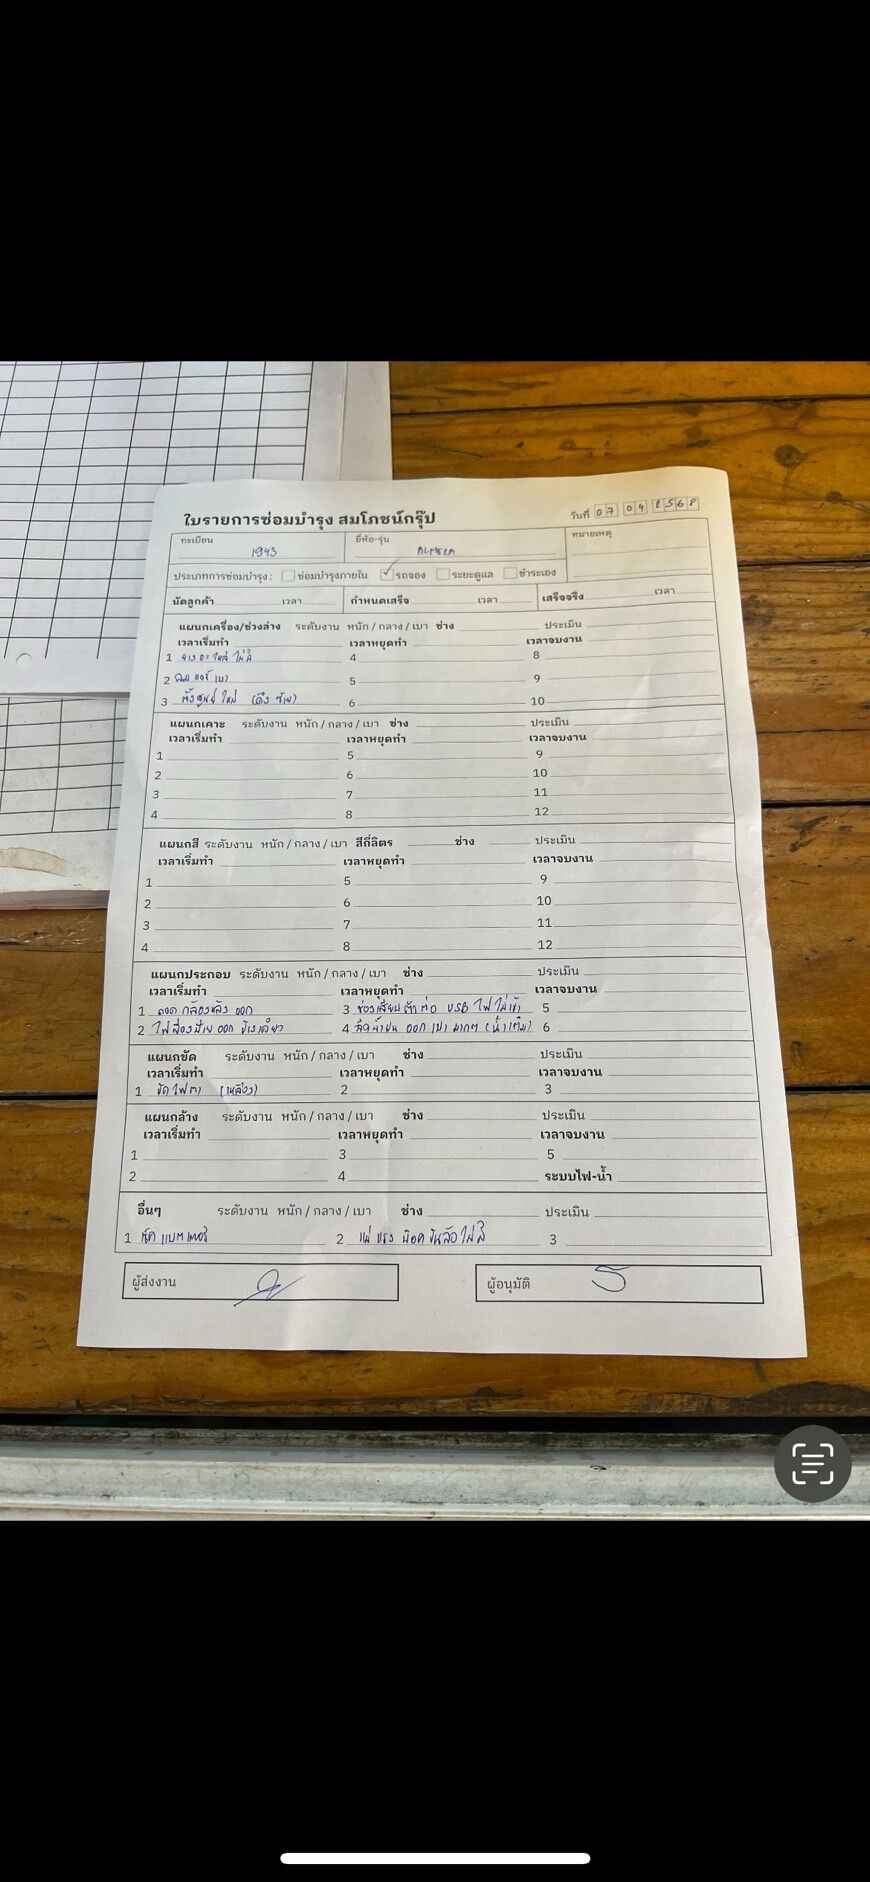 ใบรายการซ่อมบำรุง สมโภชน์กรุ๊ป
วันที่ 07 04 256
ทะเบียน 1943 ยี่ห้อ-รุ่น ALMERA หมายเหตุ
ประเภทการซ่อมบำรุง : ซ่อมบำรุงภายใน ✓ รถจอง ระยะดูแล ชำระเอง
นัดลูกค้า เวลา กำหนดเสร็จ เวลา เสร็จจริง เวลา
แผนกเครื่อง/ช่วงล่าง ระดับงาน หนัก / กลาง / เบา ช่าง ประเมิน
เวลาเริ่มทำ เวลาหยุดทำ เวลาจบงาน
1 ไม่ดี 4 8
2 แอร์ เบา 5 9
3 ตั้งศูนย์ ใหม่ (ดึง ซ้าย) 6 10
แผนกเคาะ ระดับงาน หนัก / กลาง / เบา ช่าง ประเมิน
เวลาเริ่มทำ เวลาหยุดทำ เวลาจบงาน
1 5 9
2 6 10
3 7 11
4 8 12
แผนกสี ระดับงาน หนัก / กลาง / เบา สีกี่ลิตร ช่าง ประเมิน
เวลาเริ่มทำ เวลาหยุดทำ เวลาจบงาน
1 5 9
2 6 10
3 7 11
4 8 12
แผนกประกอบ ระดับงาน หนัก / กลาง / เบา ช่าง ประเมิน
เวลาเริ่มทำ เวลาหยุดทำ เวลาจบงาน
1 ถอด กล้องหลัง ออก 3 ช่องเสียบตัวต่อ USB ไฟไม่เข้า 5
2 ไฟส่องป้าย ออก ข้างเดียว 4 ฉีดน้ำฝน ออก เบา มากๆ (น้ำเต็ม) 6
แผนกขัด ระดับงาน หนัก / กลาง / เบา ช่าง ประเมิน
เวลาเริ่มทำ เวลาหยุดทำ เวลาจบงาน
1 ขัด ไฟตา (เหลือง) 2 3
แผนกล้าง ระดับงาน หนัก / กลาง / เบา ช่าง ประเมิน
เวลาเริ่มทำ เวลาหยุดทำ เวลาจบงาน
1 3 5
2 4 ระบบไฟ-น้ำ
อื่นๆ ระดับงาน หนัก / กลาง / เบา ช่าง ประเมิน
1 เช็ค แบตเตอรี่ 2 แม่ แรง น๊อค ขันล้อ ไม่มี 3
ผู้ส่งงาน ผู้อนุมัติ